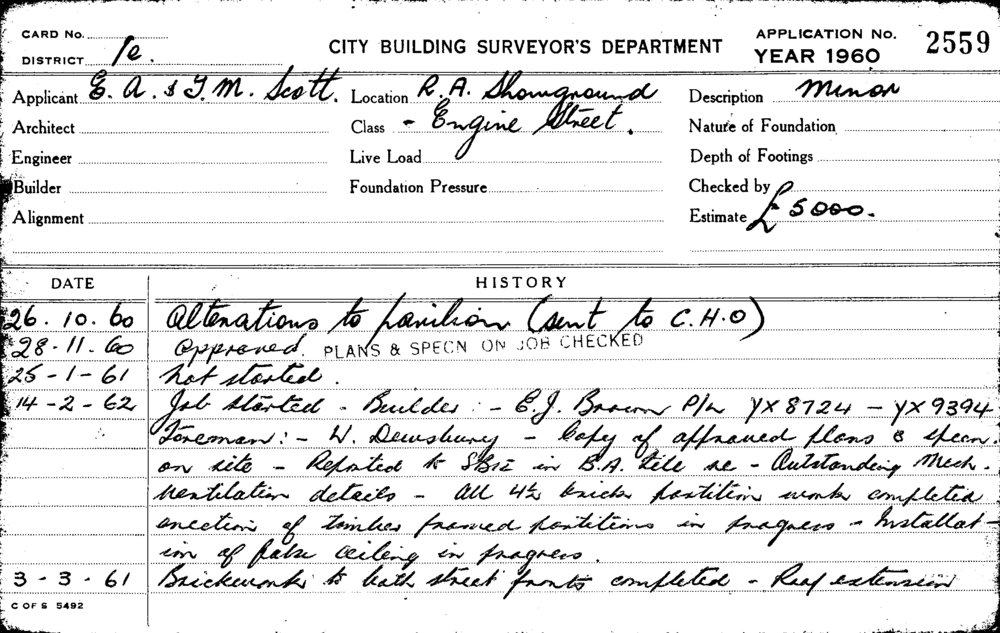 CARD No.
DISTRICT 1e.
CITY BUILDING SURVEYOR'S DEPARTMENT
APPLICATION No. 2559
YEAR 1960
Applicant E. A. & T. M. Scott. Location R. A. Showground Description Minor
Architect Class - Engine Street. Nature of Foundation
Engineer Live Load Depth of Footings
Builder Foundation Pressure Checked by
Alignment Estimate £5000.
DATE HISTORY
26.10.60 Alterations to pavilion (sent to C.H.O)
28-11-60 Approved. PLANS & SPECN ON JOB CHECKED
25-1-61 Not started.
14-2-62 Job started - Builder :- E.J. Brown P/L YX8724 - YX9394
Foreman :- W. Dewsbury - Copy of approved plans & specn.
on site - Reported to in B.A. file re - Outstanding Mech.
ventilation details - All 4½ brick partition work completed
erection of timber framed partitions in progress - Installat-
ion of false ceiling in progress.
3-3-61 Brickwork to both street fronts completed - Roof extension
C OF S 5492